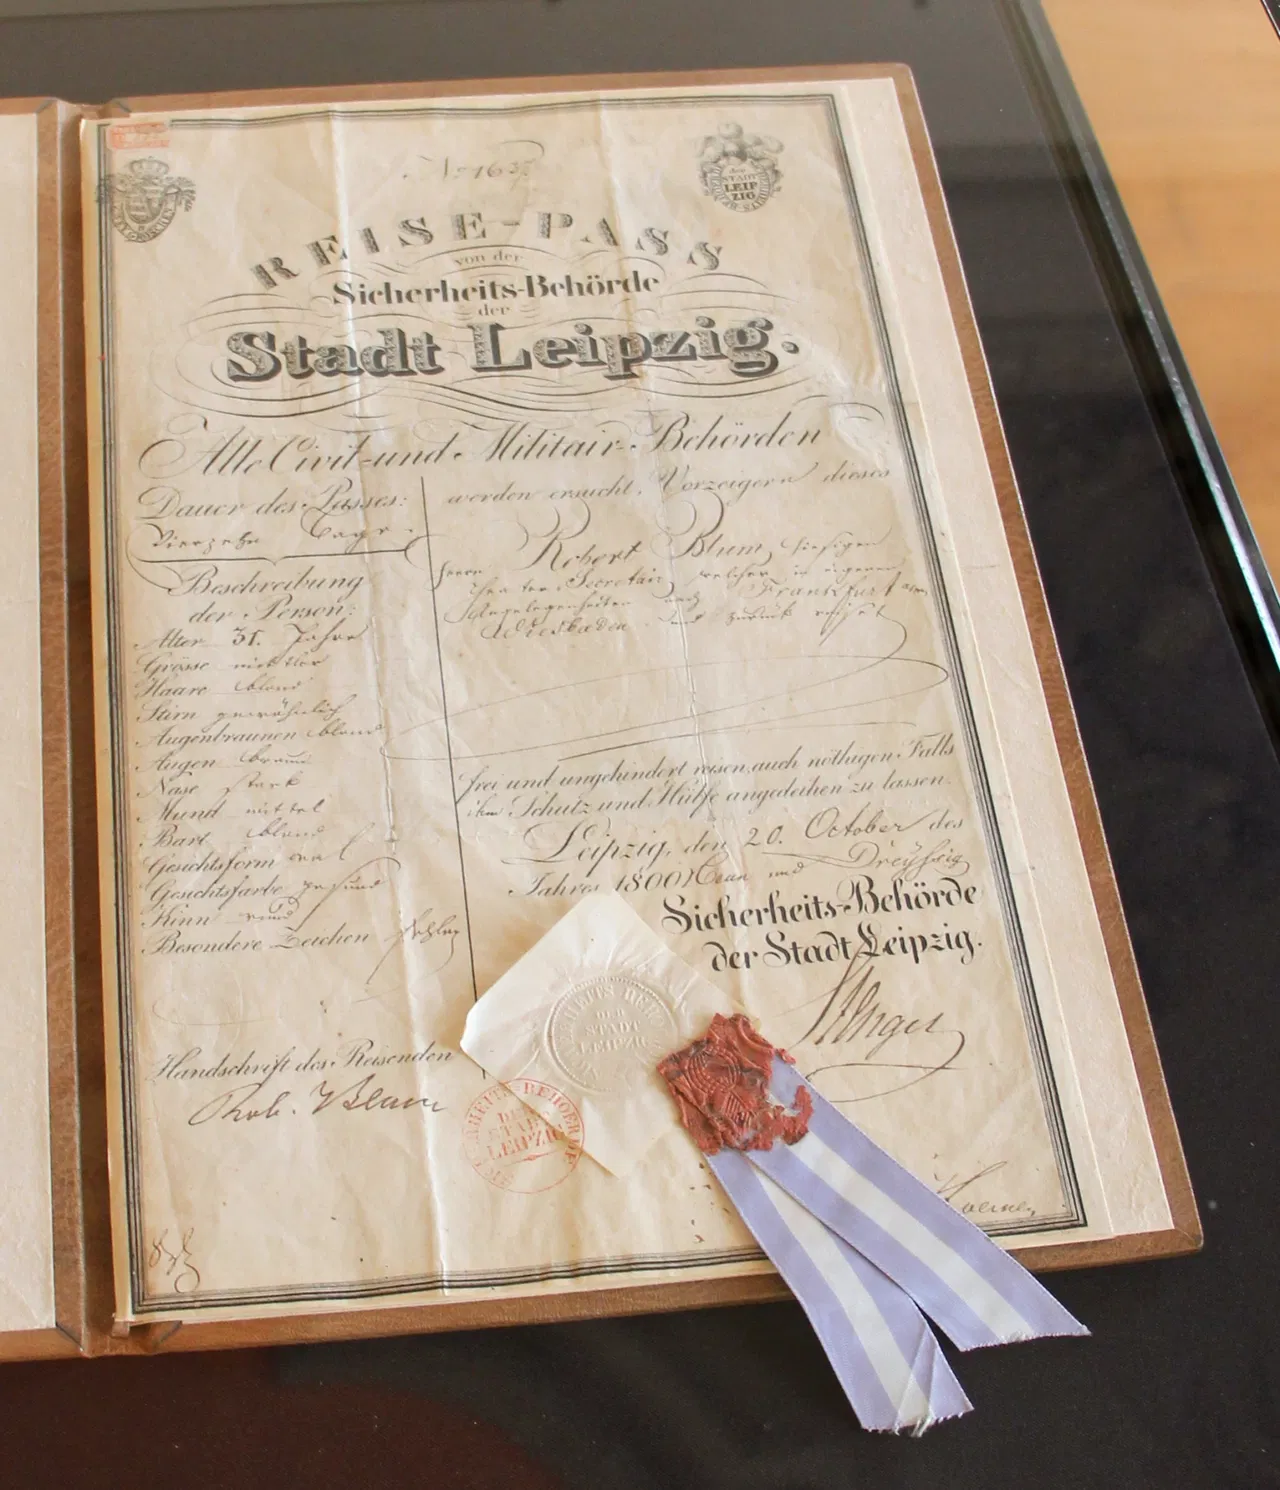 DER
STADT
LEIP
ZIG
REISE-PASS
von der
Sicherheits-Behörde
der
Stadt Leipzig.
Alle Civil- und Militair-Behörden
werden ersucht, Vorzeigern dieses
Herrn Robert Blum, hiesigen
Theater Secretair, welcher in eigenen
Angelegenheiten nach Frankfurt am
Wiesbaden und zurück reiset
frei und ungehindert reisen, auch nöthigen Falls
ihm Schutz und Hülfe angedeihen zu lassen.
Leipzig, den 20. October des
Jahres 1800 Neun und Dreyßig
Sicherheits-Behörde
der Stadt Leipzig.
Dauer des Passes:
Vierzehn Tage
Beschreibung
der Person:
Alter 31. Jahre
Grösse mittler
Haare blond
Stirn gewöhnlich
Augenbraunen blond
Augen braun
Nase stark
Mund mittel
Bart blond
Gesichtsform oval
Gesichtsfarbe gesund
Kinn rund
Besondere Zeichen fehlen
Handschrift des Reisenden
Rob. Blum
SICHERHEITS BEHÖRDE
DER
STADT
LEIPZIG
SICHERHEITS-BEHOERDE
DER
STADT
LEIPZIG